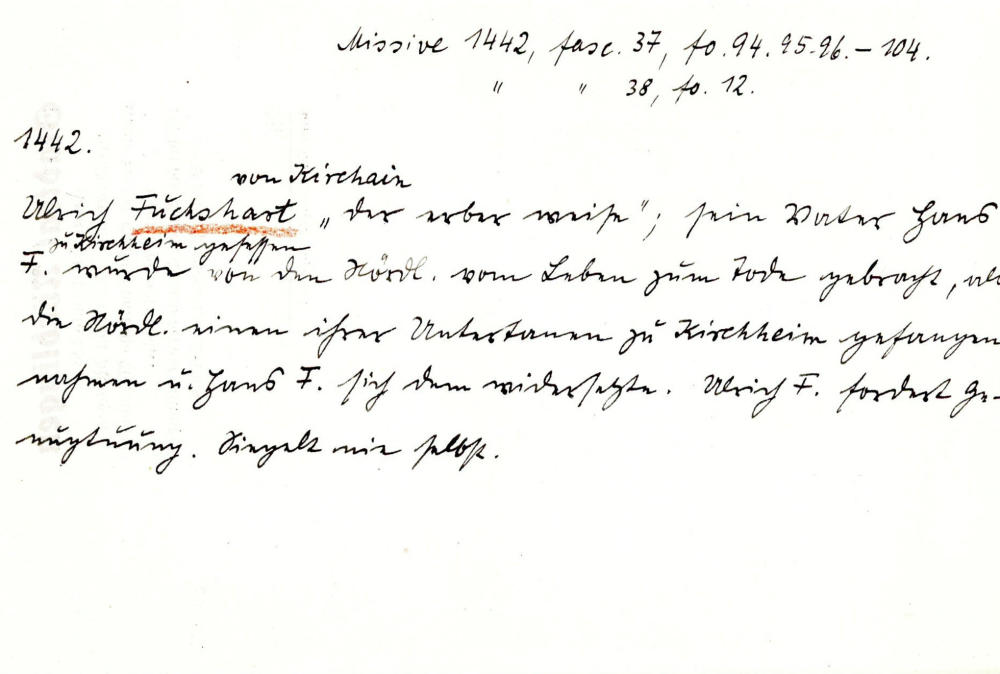 Missive 1442, fasc. 37, fo. 94. 95. 96. – 104.
" " 38, fo. 12.
1442.
von Kirchain
Ulrich Fuchshart „der erber weise"; sein Vater Hans
zu Kirchheim gesessen
F. wurde von den Nördl. vom Leben zum Tode gebracht, als
die Nördl. einen ihrer Untertanen zu Kirchheim gefangen
nahmen u. Hans F. sich dem widersetzte. Ulrich F. fordert Ge-
nugtuung. Siegelt nie selbst.